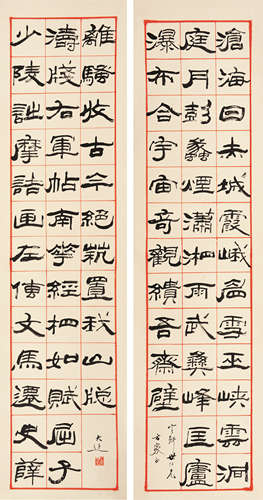 滄海日赤城霞峨眉雪巫峽雲洞
庭月彭蠡煙瀟湘雨武彝峰匡廬
瀑布合宇宙奇觀繢吾齋壁
方家正
少陵詩摩詰畫左傳文馬遷史薛
濤牋右軍帖南華經相如賦屈子
離騷收古今絕藝置我山窗